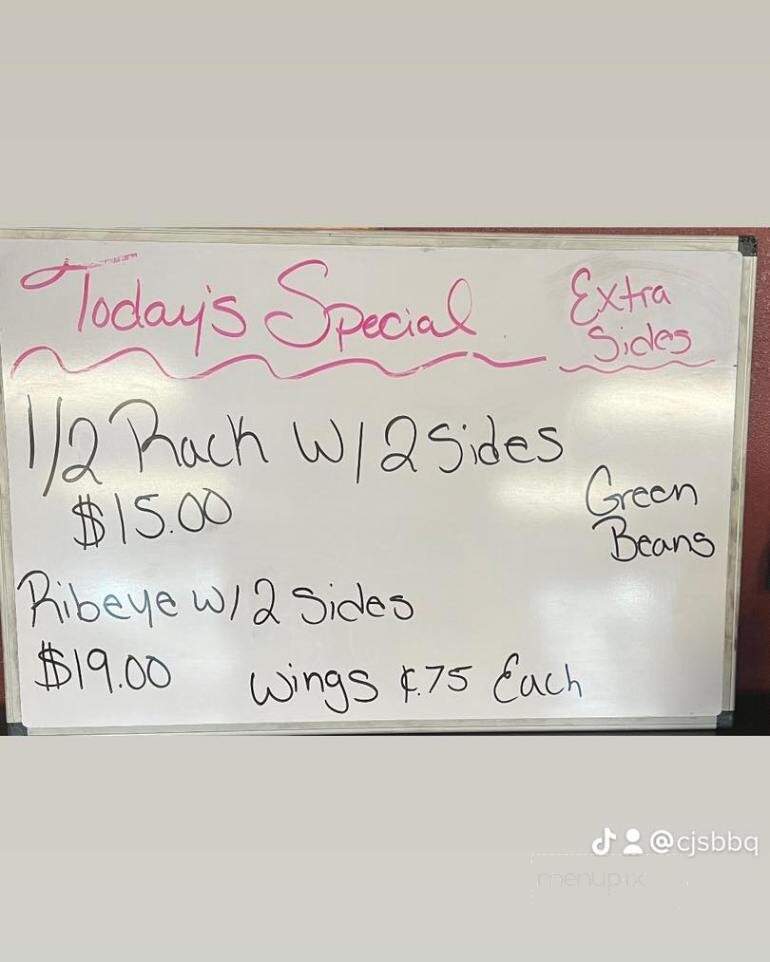 Today's Special
Extra
Sides
1/2 Rack W/2 Sides
$15.00
Green
Beans
Ribeye W/2 Sides
$19.00
Wings ¢.75 Each
@cjsbbq
menupix